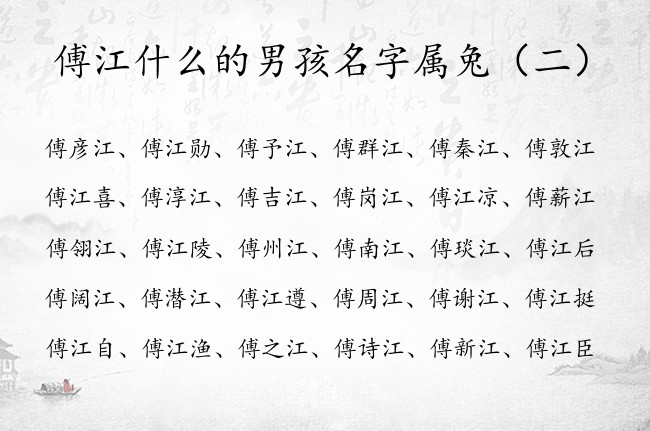 傅江什么的男孩名字属兔（二）
傅彦江、傅江勋、傅予江、傅群江、傅秦江、傅敦江
傅江喜、傅淳江、傅吉江、傅岗江、傅江凉、傅薪江
傅翎江、傅江陵、傅州江、傅南江、傅琰江、傅江后
傅阔江、傅潜江、傅江遵、傅周江、傅谢江、傅江挺
傅江自、傅江渔、傅之江、傅诗江、傅新江、傅江臣